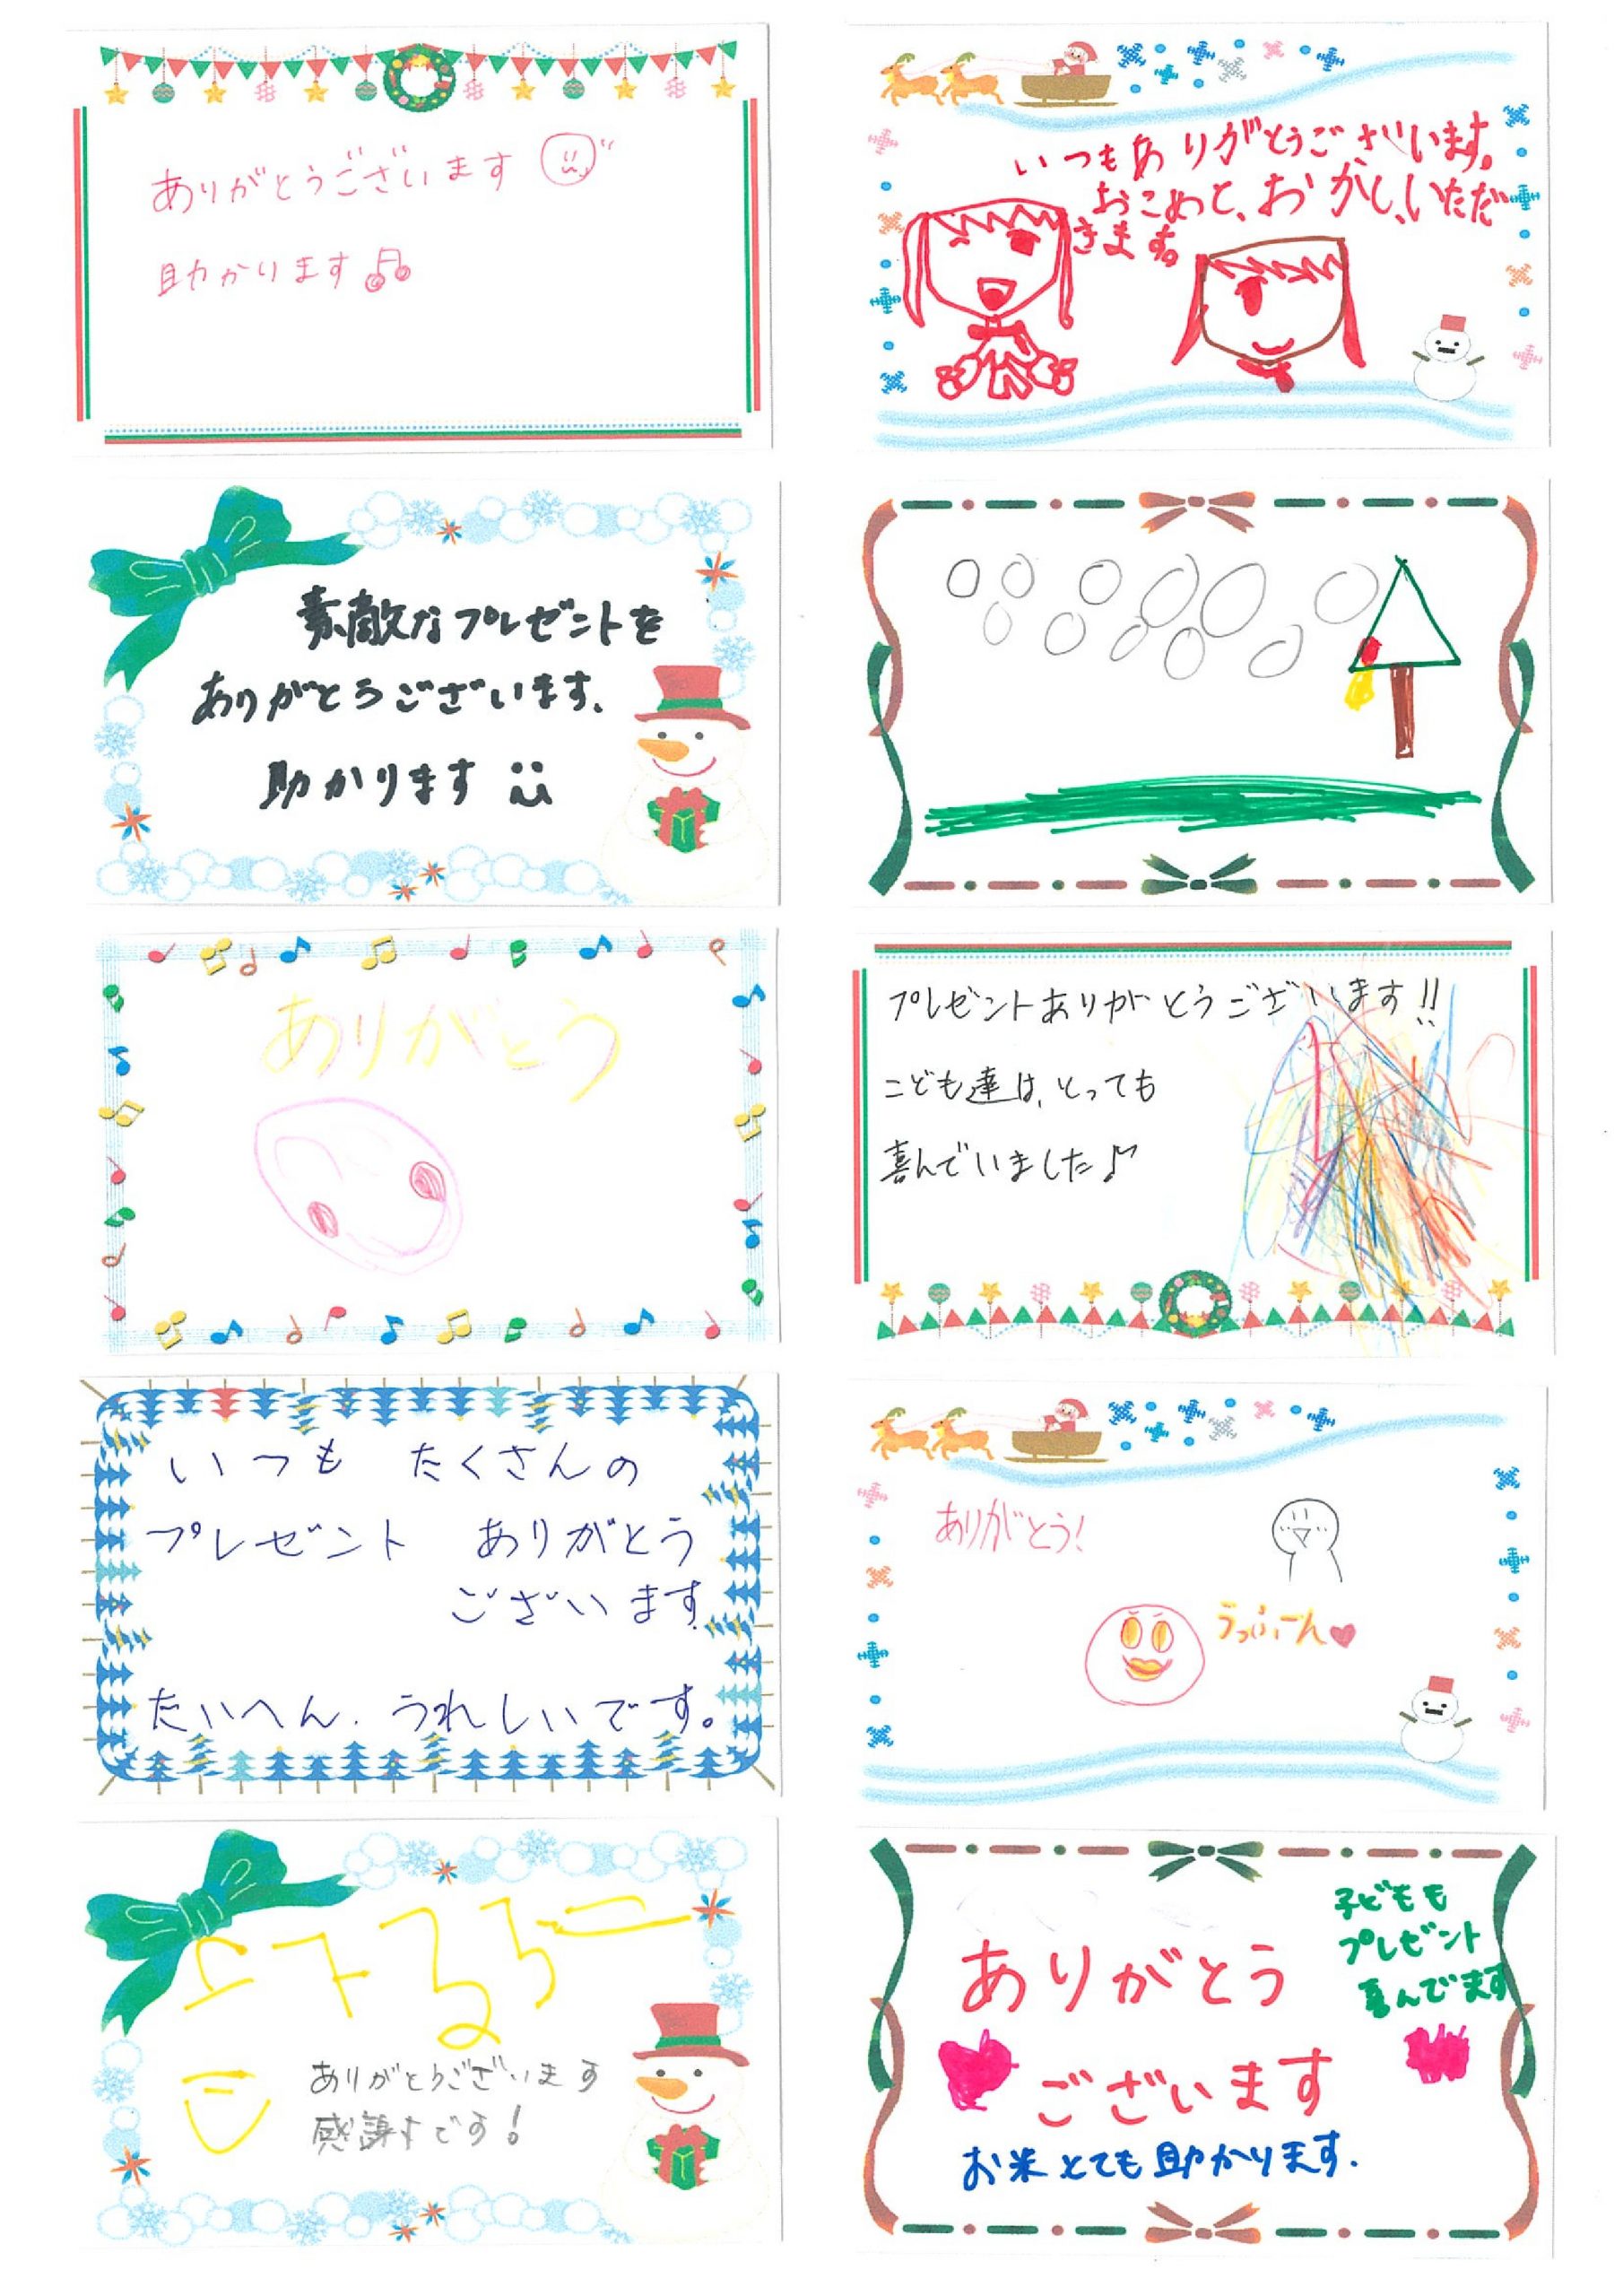 ありがとうございます
助かります
いつもありがとうございます。
おこめと、おかし、いただ
きます。
素敵なプレゼントを
ありがとうございます.
助かります
ありがとう
プレゼントありがとうございます!!
こども達は、とっても
喜んでいました♪
いつも たくさんの
プレゼント ありがとう
ございます.
たいへん. うれしいです。
ありがとう!
うっふーん♥
ありがとうございます
感謝です!
子どもも
プレゼント
喜んでます
ありがとう
ございます
お米とても助かります.